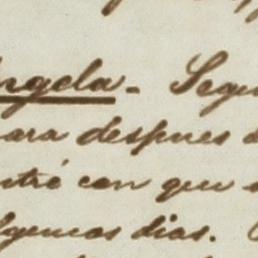 ngela. Segu
ara despues d
ntré con que
lgunos dias.